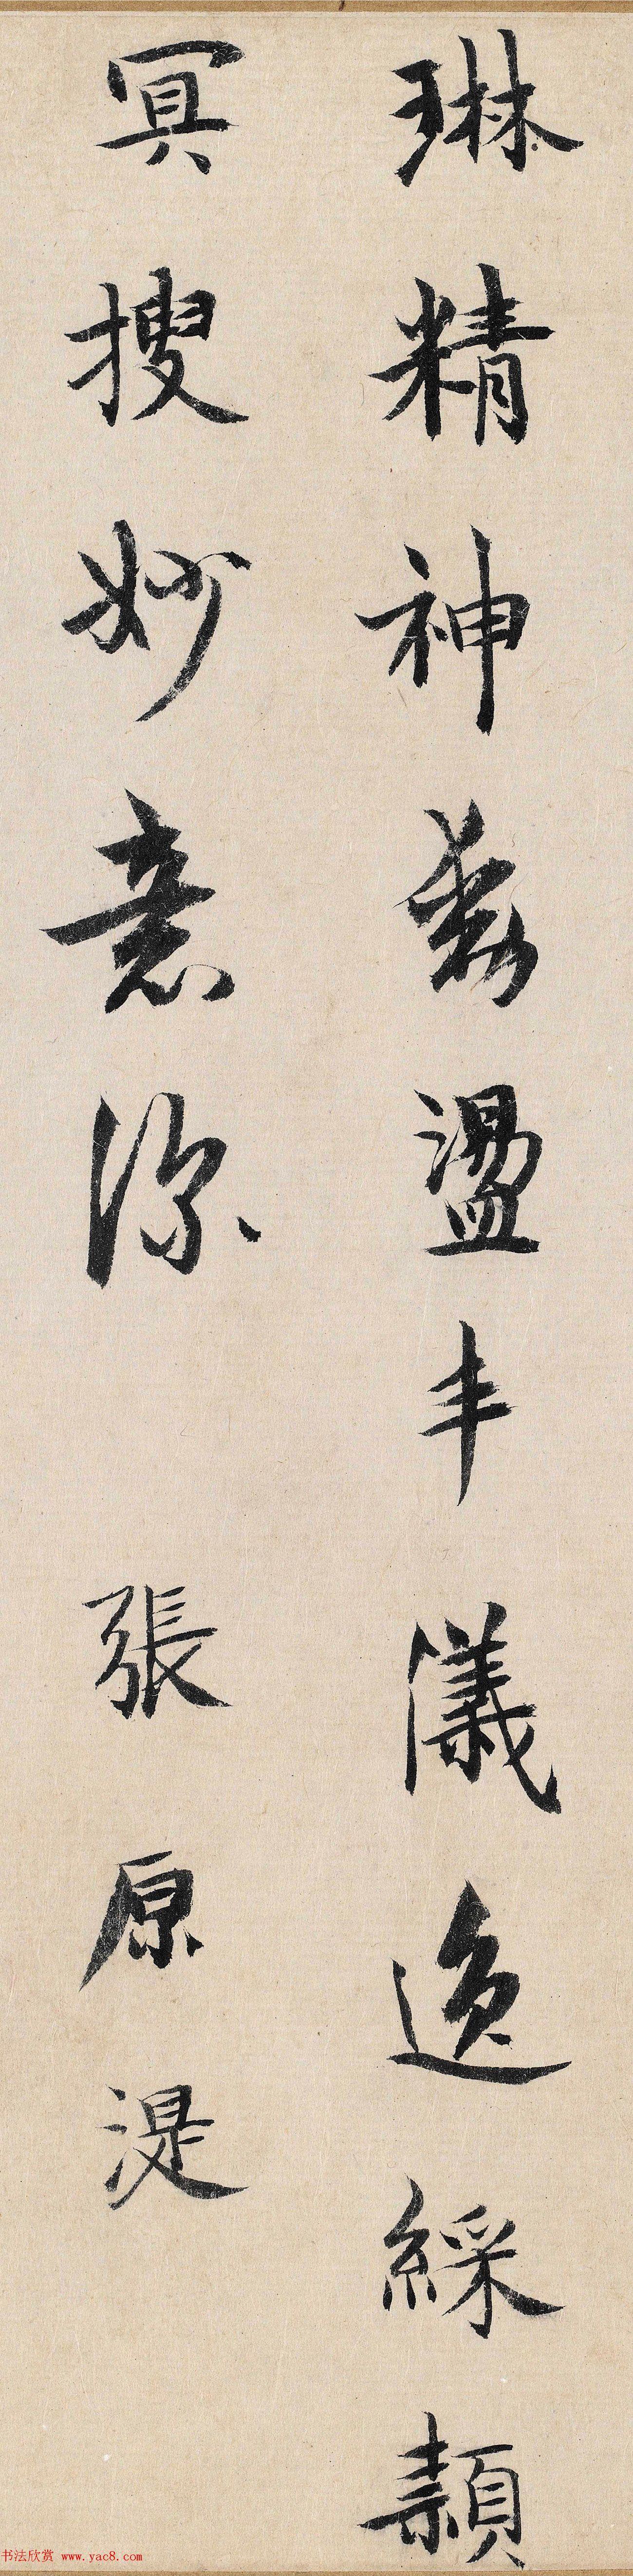 琳精神發盪丰儀逸綵頛
冥搜妙意深
張原湜
书法欣赏 www.yac8.com